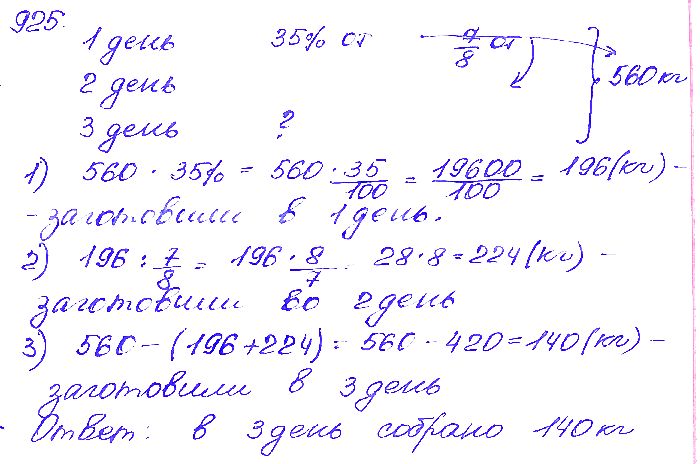 925.
1 день 35% от 7/8 от
2 день 560 кг
3 день ?
1) 560 · 35% = 560 · 35/100 = 19600/100 = 196 (кг) -
- заготовили в 1 день.
2) 196 : 7/8 = 196 · 8/7 28 · 8 = 224 (кг) -
заготовили во 2 день
3) 560 - (196 + 224) = 560 - 420 = 140 (кг) -
заготовили в 3 день
Ответ: в 3 день собрано 140 кг